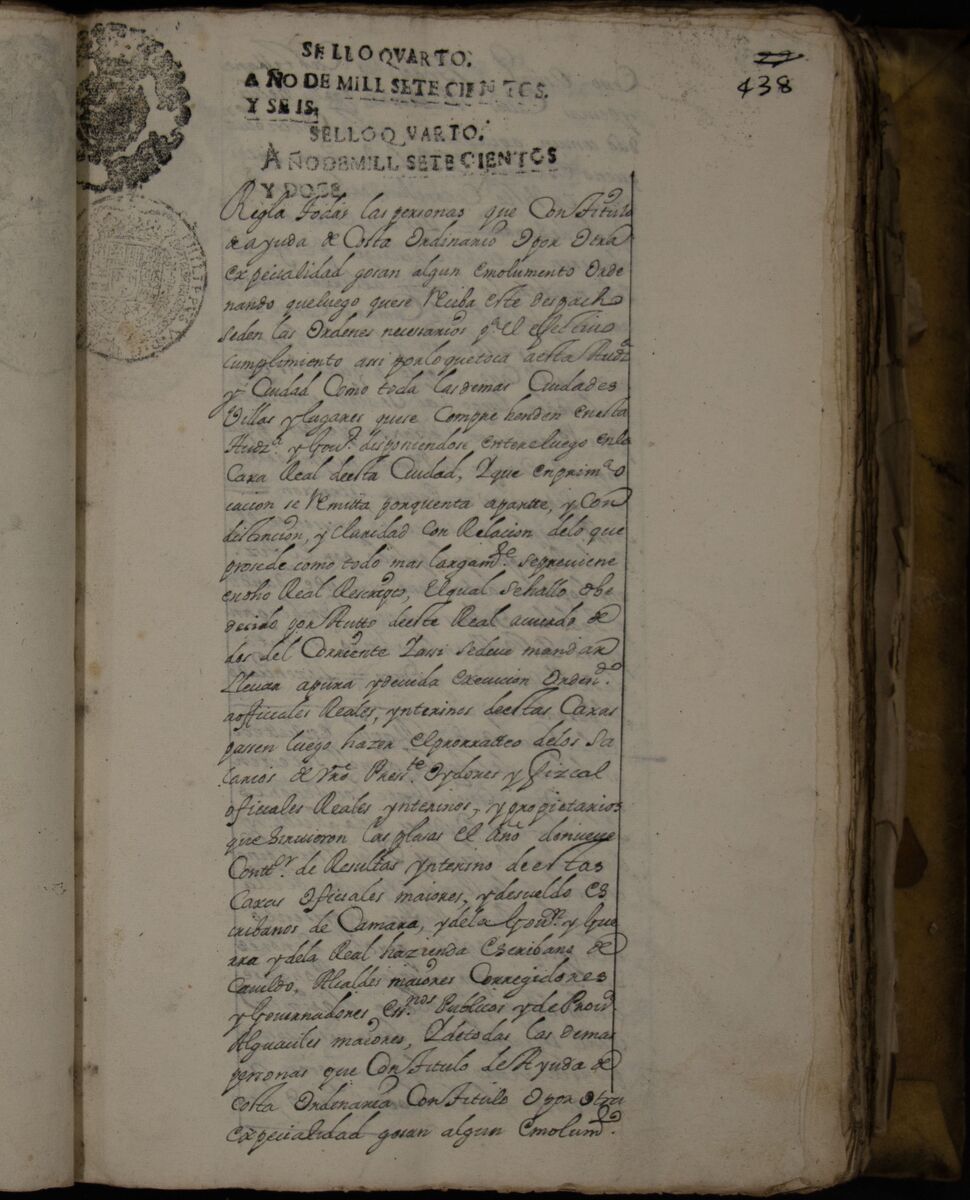 438
SELLO QVARTO.
AÑO DE MILL SETECIENTOS.
Y SEIS.
SELLO QVARTO.
AÑO DE MILL SETECIENTOS
Y DOCE
Regla todas las personas que Con titulo
de ayuda de Costa Ordinario O por Otra
expecialidad gosan algun Emolumento Orde
nando que luego que se reciba este despacho
se den las Ordenes necesarios pª el efectivo
cumplimiento assi por lo que toca a esta Audª
y Ciudad Como toda las demas Ciudades
Villas y lugares que se Comprehenden en esta
Audª y Govº disponiendose entere luego en la
Caxa Real de esta Ciudad, Y que en prim
cacion se remitta por quenta apartte, y con
distincion, y claridad con Relacion de lo que
prosede como todo mas largamte se previene
en dho Real Rescripto, El qual se hallo obe
decido por Autto de este Real acuerdo de
dos del Corriente Y assi se deve mandar
llevar a pura y devida execucion Ordendo
a officiales Reales, ynterinos de estas Caxas
passen luego hazer el prorratteo de los sa
larios de vro Preste Oydores y Fizcal
oficiales Reales ynterinos, y propietarios
que sirvieron las plasas el Año de nueve
Conttor de Resultas ynterino de estas
Caxas Oficiales maiores, y de sueldo Es
cribanos de Camara, y de la Govon y Gue
rra y de la Real hazienda Escribano de
Cavildo, Alcaldes maiores Corregidores
y Governadores, Essnos Publicos y de Provª
Alguaciles maiores, Y de todas las demas
personas que Con titulo de Ayuda de
costa Ordinaria Con titulo O por otra
expecialidad gosan algun Emolumto